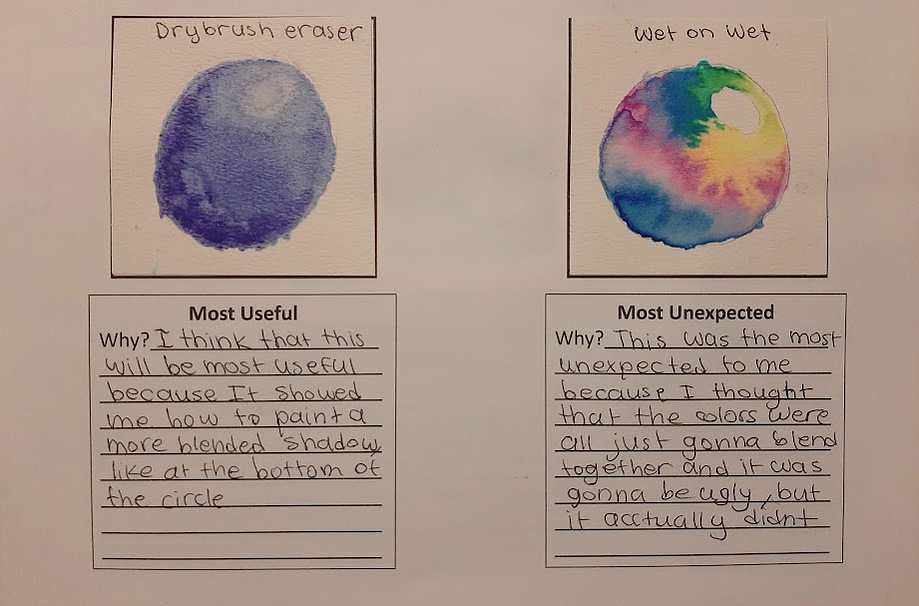 Drybrush eraser
Most Useful
Why? I think that this
will be most useful
because It showed
me how to paint a
more blended shadow,
like at the bottom of
the circle
Wet on Wet
Most Unexpected
Why? This was the most
unexpected to me
because I thought
that the colors were
all just gonna blend
together and it was
gonna be ugly, but
it acctually didnt